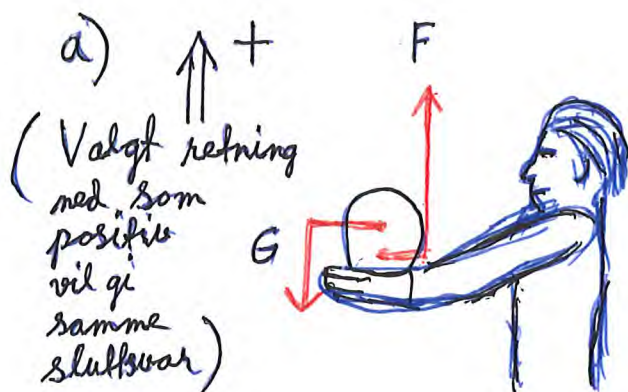 a) +
F
(Valgt retning
ned som
positiv
vil gi
samme
sluttsvar)
G